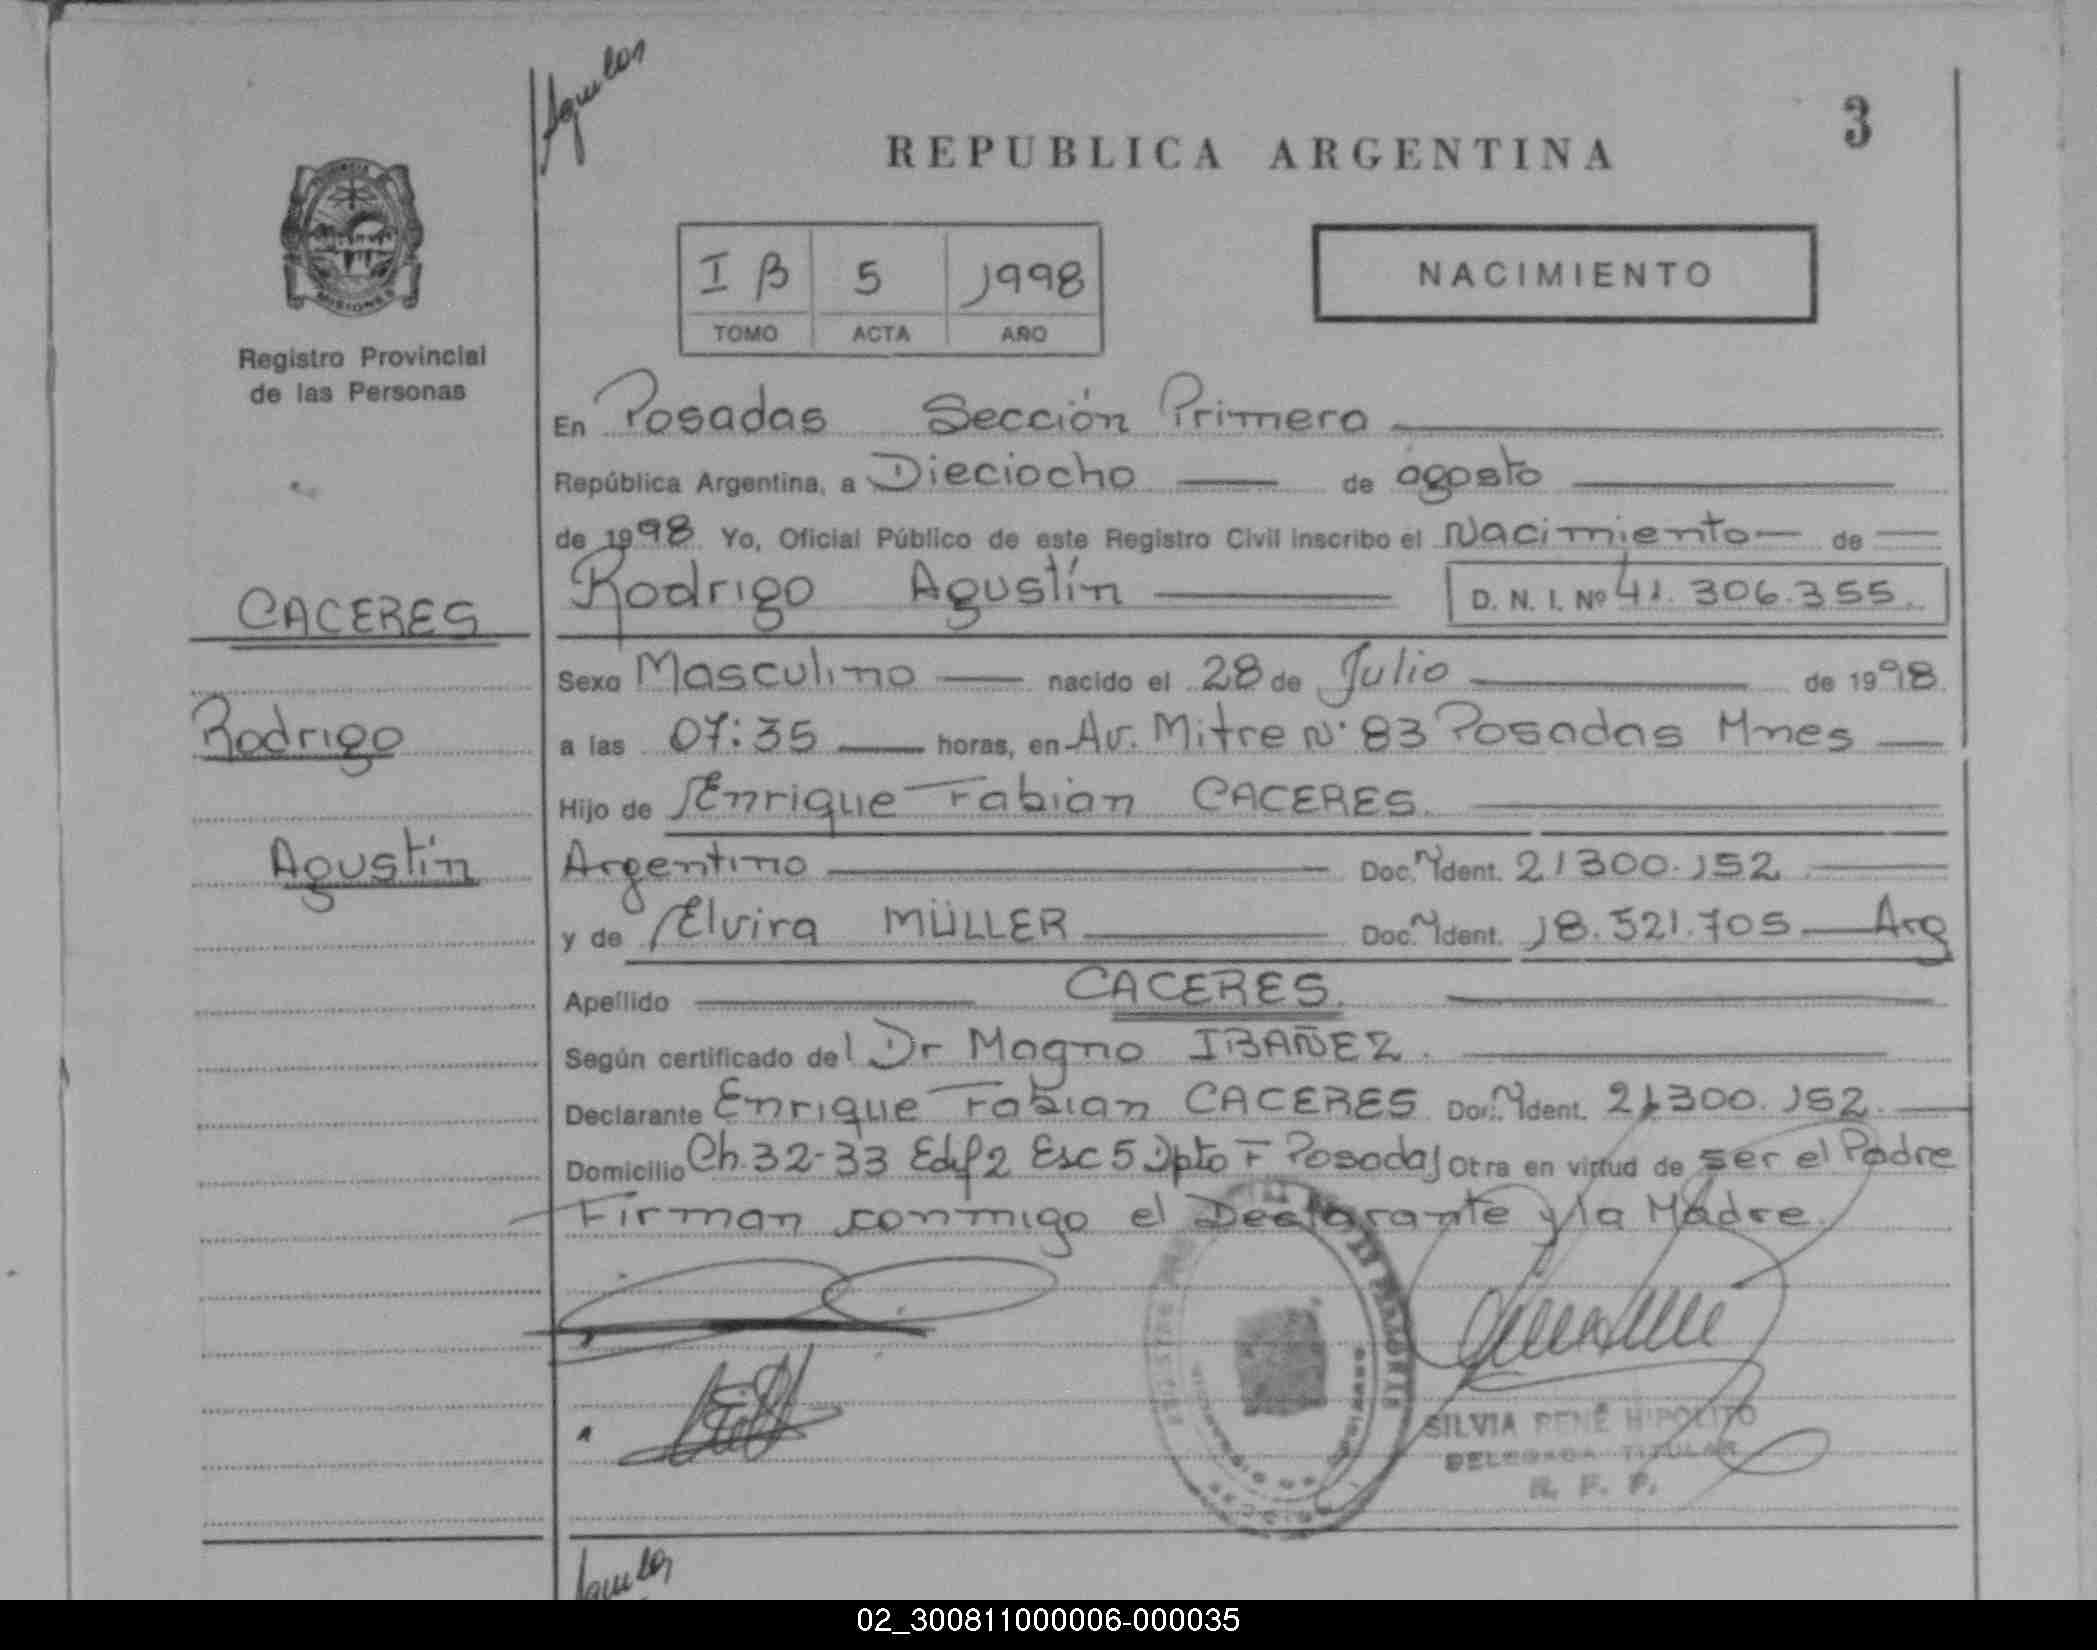 Aguilar
3
REPUBLICA ARGENTINA
MISIONES
Registro Provincial
de las Personas
I B 5 1998
TOMO ACTA AÑO
NACIMIENTO
En Posadas Sección Primera
República Argentina, a Dieciocho de agosto
de 1998 Yo, Oficial Público de este Registro Civil inscribo el Nacimiento de
CACERES
Rodrigo Agustín D. N. I. Nº 41.306.355.
Sexo Masculino nacido el 28 de Julio de 1998.
Rodrigo
a las 07:35 horas, en Av. Mitre Nº 83 Posadas Mnes
Hijo de Enrique Fabian CACERES.
Agustín
Argentino Doc. Ident. 21300.152
y de Elvira MÜLLER Doc. Ident. 18.521.705 Arg
Apellido CACERES.
Según certificado del Dr Magno IBAÑEZ.
Declarante Enrique Fabian CACERES Doc. Ident. 21300.152.
Domicilio Ch. 32-33 Edif 2 Esc 5 Dpto F Posadas Otra en virtud de ser el Padre
Firman conmigo el Declarante y la Madre.
SILVIA RENÉ HIPOLITO
DELEGADA TITULAR
R. P. P.
02_300811000006-000035